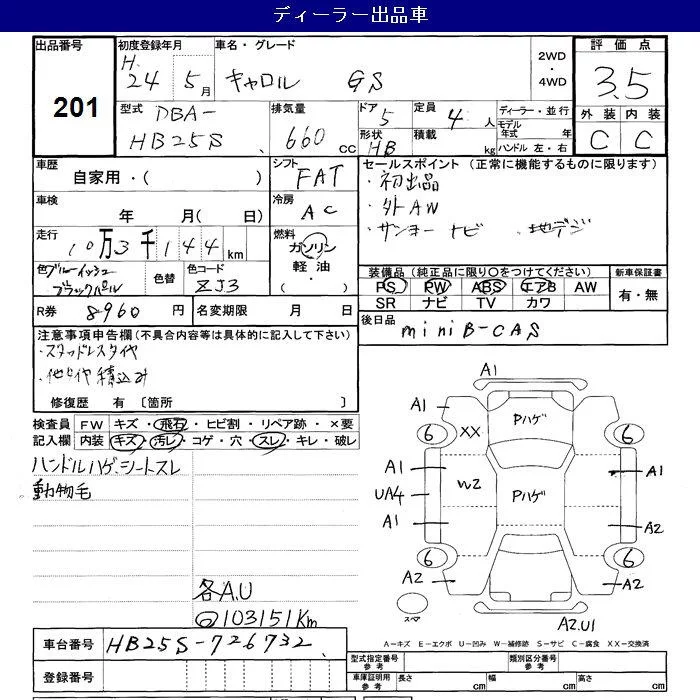 ディーラー出品車
出品番号 初度登録年月 車名・グレード 2WD 評価点
H. 24 年 5月 キャロル GS ・ 3.5
201 4WD
型式 DBA- 排気量 ドア 5 定員 4人 ディーラー・並行 外装 内装
HB25S 660 cc 形状 HB 積載 kg モデル年式 年 C C
ハンドル 左・右
車歴 シフト セールスポイント (正常に機能するものに限ります)
自家用・( ) FAT ・初出品
車検 冷房 ・外AW
年 月( 日) AC ・サンヨーナビ ・地デジ
走行 燃料
10万3千144km ガソリン
色 ブルーイッシュ 色替 色コード 軽油 装備品(純正品に限り○をつけてください) 新車保証書
ブラックパール ZJ3 ・ PS PW ABS エアB AW 有・無
SR ナビ TV カワ
R券 8960円 名変期限 月 日 後日品
注意事項申告欄(不具合内容等は具体的に記入して下さい) miniB-CAS
・スタッドレスタイヤ
・他タイヤ積込み
修復歴 有 [箇所 ]
検査員 FW キズ・飛石・ヒビ割・リペア跡・×要
記入欄 内装 キズ・汚レ・コゲ・穴・スレ・キレ・破レ
ハンドルハゲ、シートスレ
動物毛
各A.U
103151Km
A1
A1 Pハゲ
6 XX 6
A1 A1
W2 Pハゲ
UA4
A1 A2
6 6
A2 A2
スペア A2.U1
A-キズ E-エクボ U-凹み W-補修跡 S-サビ C-腐食 XX-交換済
車台番号 HB25S-726732
型式指定番号 参考 類別区分番号 参考
登録番号 車庫証明用 参考 長さ cm 幅 cm 高さ cm